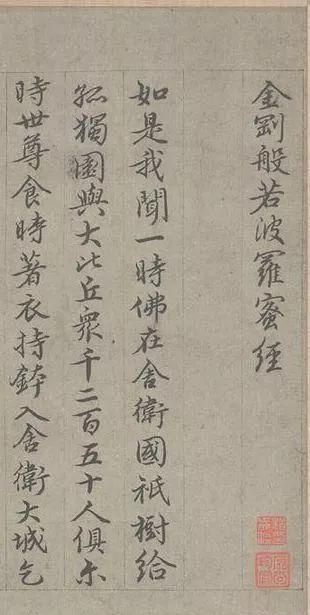 金剛般若波羅蜜經
如是我聞一時佛在舍衛國祇樹給
孤獨園與大比丘眾千二百五十人俱尒
時世尊食時著衣持鉢入舍衛大城乞